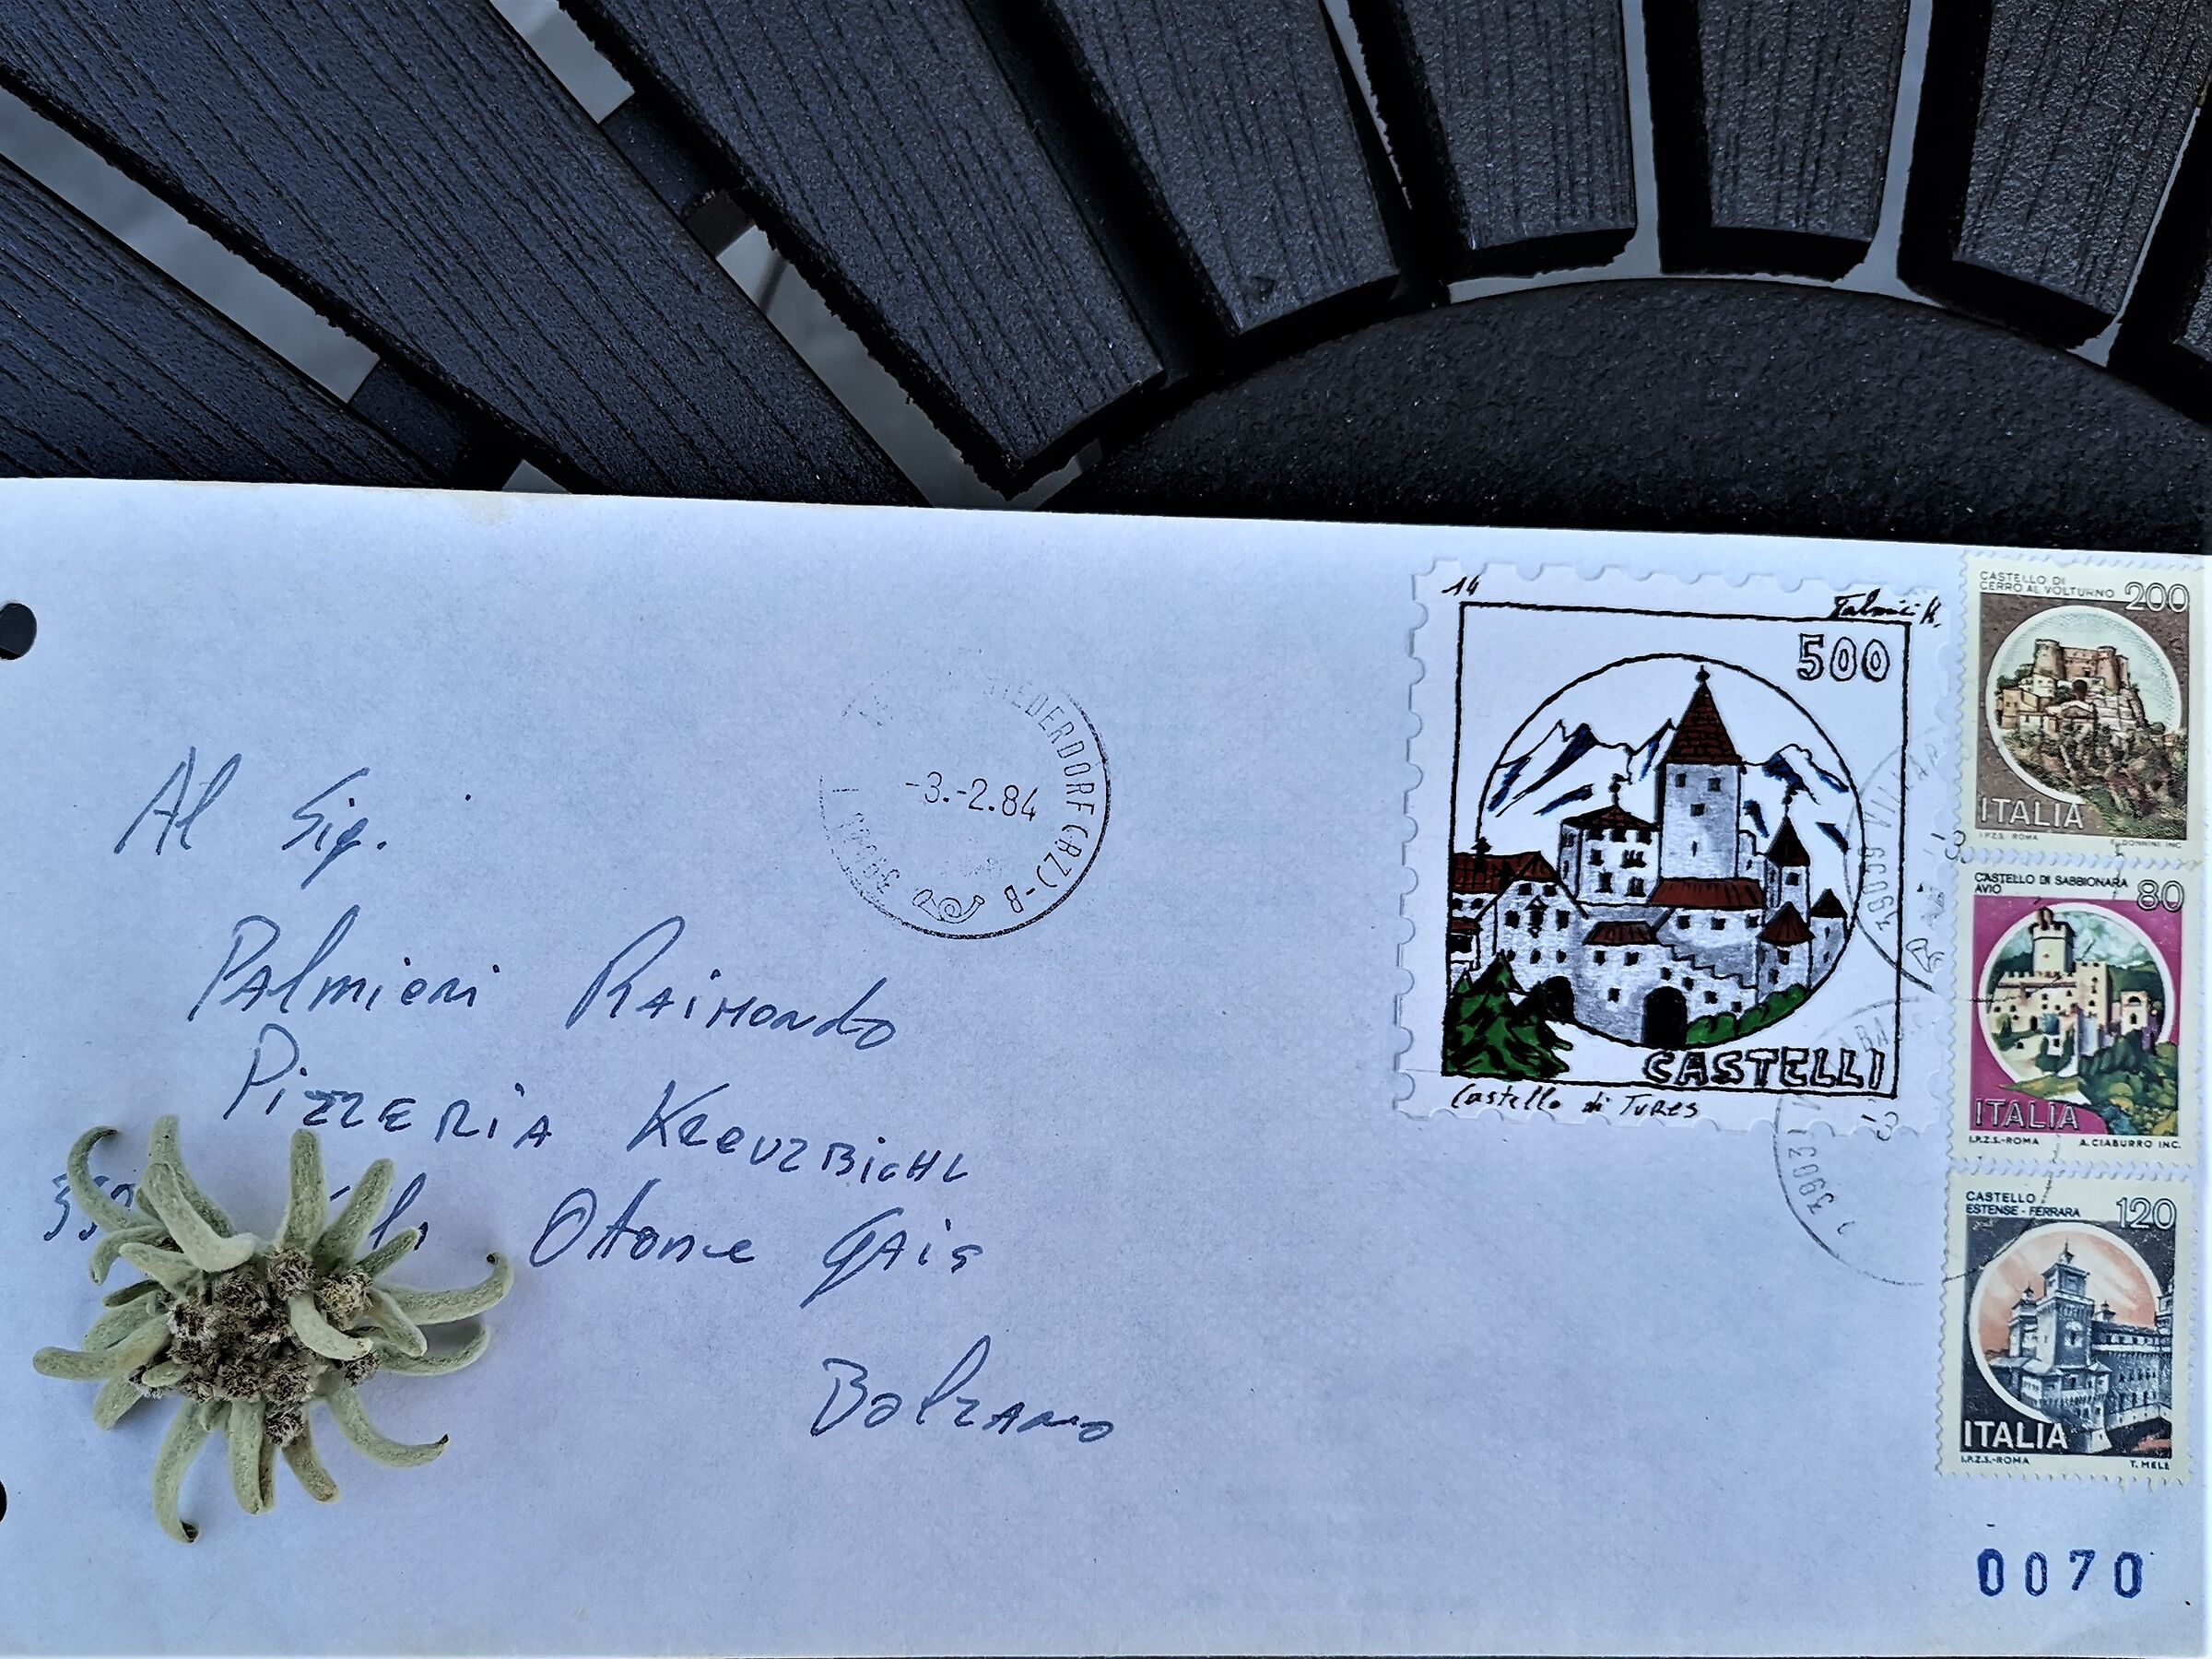 14
500
CASTELLI
Castello di Tures
CASTELLO DI
CERRO AL VOLTURNO 200
ITALIA
I.P.Z.S. ROMA E. DONNINI INC.
CASTELLO DI SABBIONARA
AVIO 80
ITALIA
I.P.Z.S.-ROMA A. CIABURRO INC.
CASTELLO
ESTENSE - FERRARA 120
ITALIA
I.P.Z.S.-ROMA T. MELE
-3.-2.84
(BZ) - B
39039
39031
Al Sig.
Palmieri Raimondo
Pizzeria Kreuzbichl
Ottone Gais
Bolzano
0070